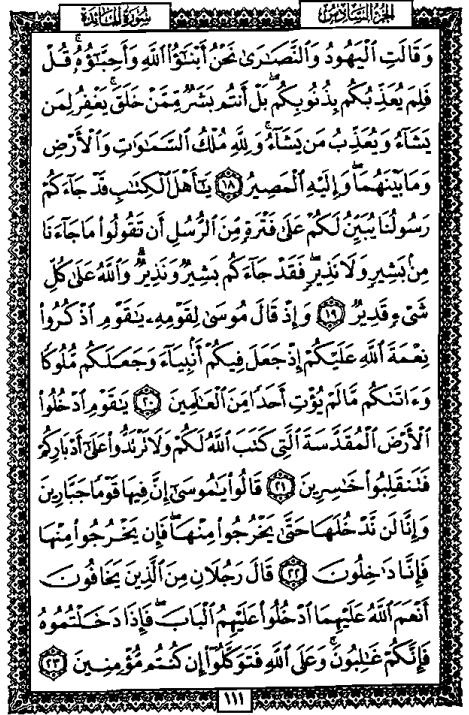 الجزء السادس
سورة المائدة
وَقَالَتِ ٱلْيَهُودُ وَٱلنَّصَٰرَىٰ نَحْنُ أَبْنَٰٓؤُا۟ ٱللَّهِ وَأَحِبَّٰٓؤُهُۥ ۚ قُلْ
فَلِمَ يُعَذِّبُكُم بِذُنُوبِكُم ۖ بَلْ أَنتُم بَشَرٌ مِّمَّنْ خَلَقَ ۚ يَغْفِرُ لِمَن
يَشَآءُ وَيُعَذِّبُ مَن يَشَآءُ ۚ وَلِلَّهِ مُلْكُ ٱلسَّمَٰوَٰتِ وَٱلْأَرْضِ
وَمَا بَيْنَهُمَا ۖ وَإِلَيْهِ ٱلْمَصِيرُ ١٨ يَٰٓأَهْلَ ٱلْكِتَٰبِ قَدْ جَآءَكُمْ
رَسُولُنَا يُبَيِّنُ لَكُمْ عَلَىٰ فَتْرَةٍ مِّنَ ٱلرُّسُلِ أَن تَقُولُوا۟ مَا جَآءَنَا
مِنۢ بَشِيرٍ وَلَا نَذِيرٍ ۖ فَقَدْ جَآءَكُم بَشِيرٌ وَنَذِيرٌ ۗ وَٱللَّهُ عَلَىٰ كُلِّ
شَىْءٍ قَدِيرٌ ١٩ وَإِذْ قَالَ مُوسَىٰ لِقَوْمِهِۦ يَٰقَوْمِ ٱذْكُرُوا۟
نِعْمَةَ ٱللَّهِ عَلَيْكُمْ إِذْ جَعَلَ فِيكُمْ أَنۢبِيَآءَ وَجَعَلَكُم مُّلُوكًا
وَءَاتَىٰكُم مَّا لَمْ يُؤْتِ أَحَدًا مِّنَ ٱلْعَٰلَمِينَ ٢٠ يَٰقَوْمِ ٱدْخُلُوا۟
ٱلْأَرْضَ ٱلْمُقَدَّسَةَ ٱلَّتِى كَتَبَ ٱللَّهُ لَكُمْ وَلَا تَرْتَدُّوا۟ عَلَىٰٓ أَدْبَارِكُمْ
فَتَنقَلِبُوا۟ خَٰسِرِينَ ٢١ قَالُوا۟ يَٰمُوسَىٰٓ إِنَّ فِيهَا قَوْمًا جَبَّارِينَ
وَإِنَّا لَن نَّدْخُلَهَا حَتَّىٰ يَخْرُجُوا۟ مِنْهَا ۖ فَإِن يَخْرُجُوا۟ مِنْهَا
فَإِنَّا دَٰخِلُونَ ٢٢ قَالَ رَجُلَانِ مِنَ ٱلَّذِينَ يَخَافُونَ
أَنْعَمَ ٱللَّهُ عَلَيْهِمَا ٱدْخُلُوا۟ عَلَيْهِمُ ٱلْبَابَ ۖ فَإِذَا دَخَلْتُمُوهُ
فَإِنَّكُمْ غَٰلِبُونَ ۚ وَعَلَى ٱللَّهِ فَتَوَكَّلُوٓا۟ إِن كُنتُم مُّؤْمِنِينَ ٢٣
١١١